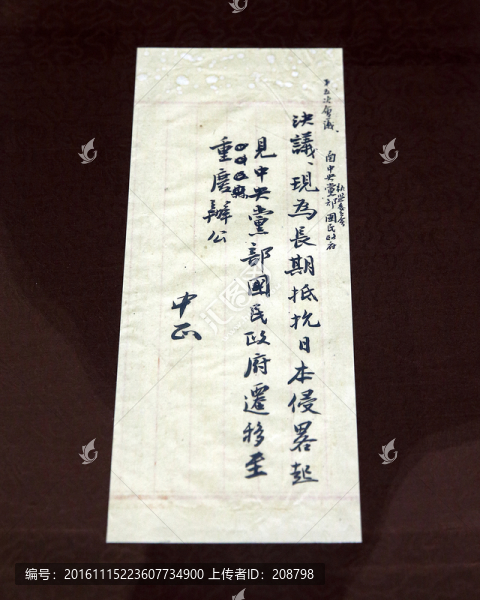 決議、現為長期抵抗日本侵畧起
見中央黨部國民政府遷移至
重慶辦公
中正
向中央黨部國民政府
编号：20161115223607734900 上传者ID：208798